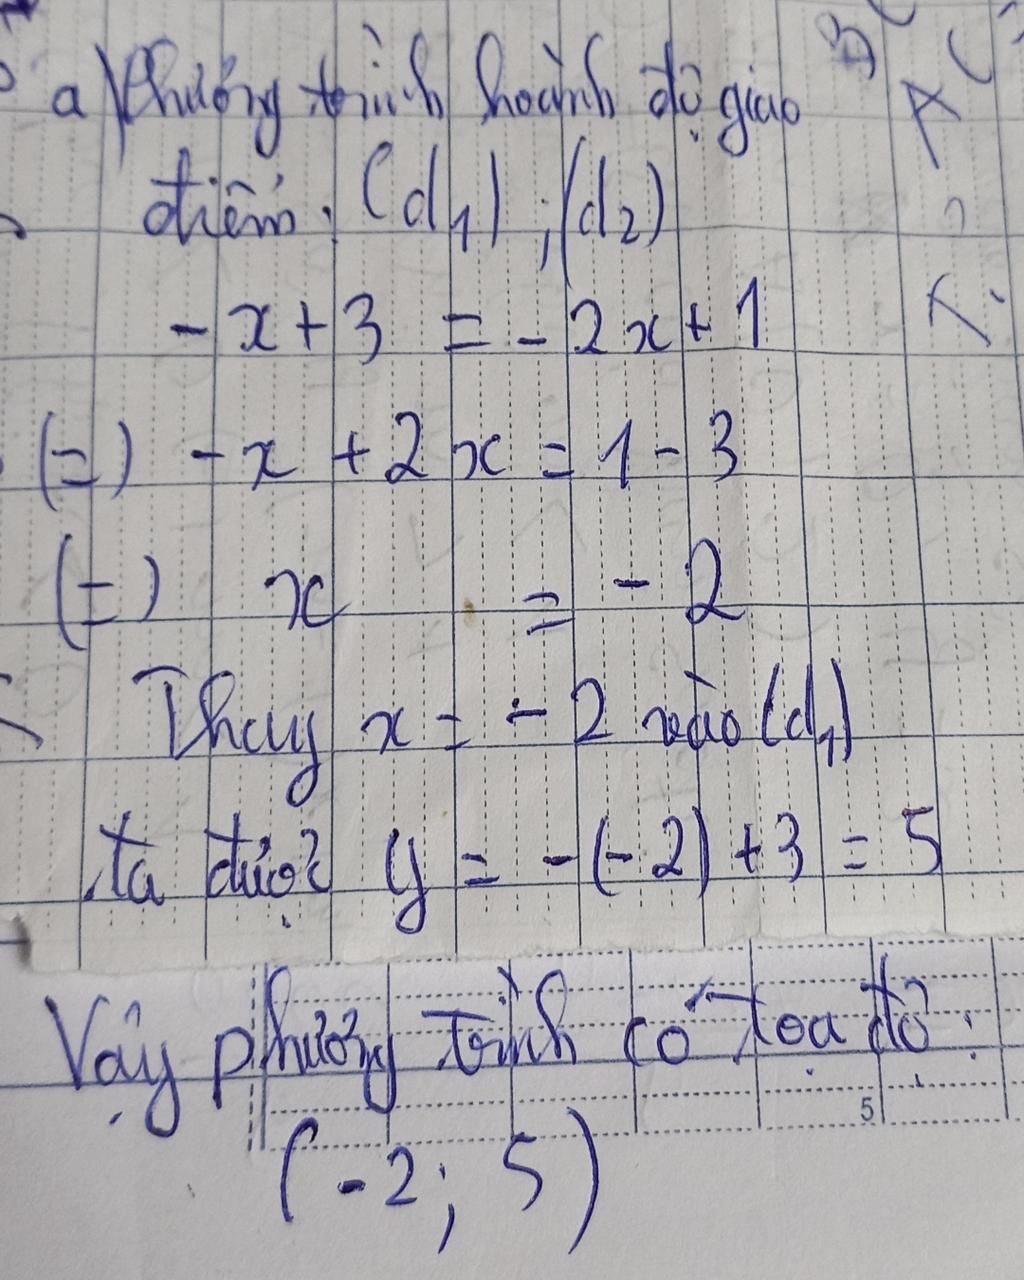 a) Phương trình hoành độ giao
điểm. (d₁) ; (d₂)
- x + 3 = - 2x + 1
(=) - x + 2x = 1 - 3
(=) x = - 2
Thay x = - 2 vào (d₁)
ta được y = - (- 2) + 3 = 5
Vậy phương trình có tọa độ :
5
(-2; 5)